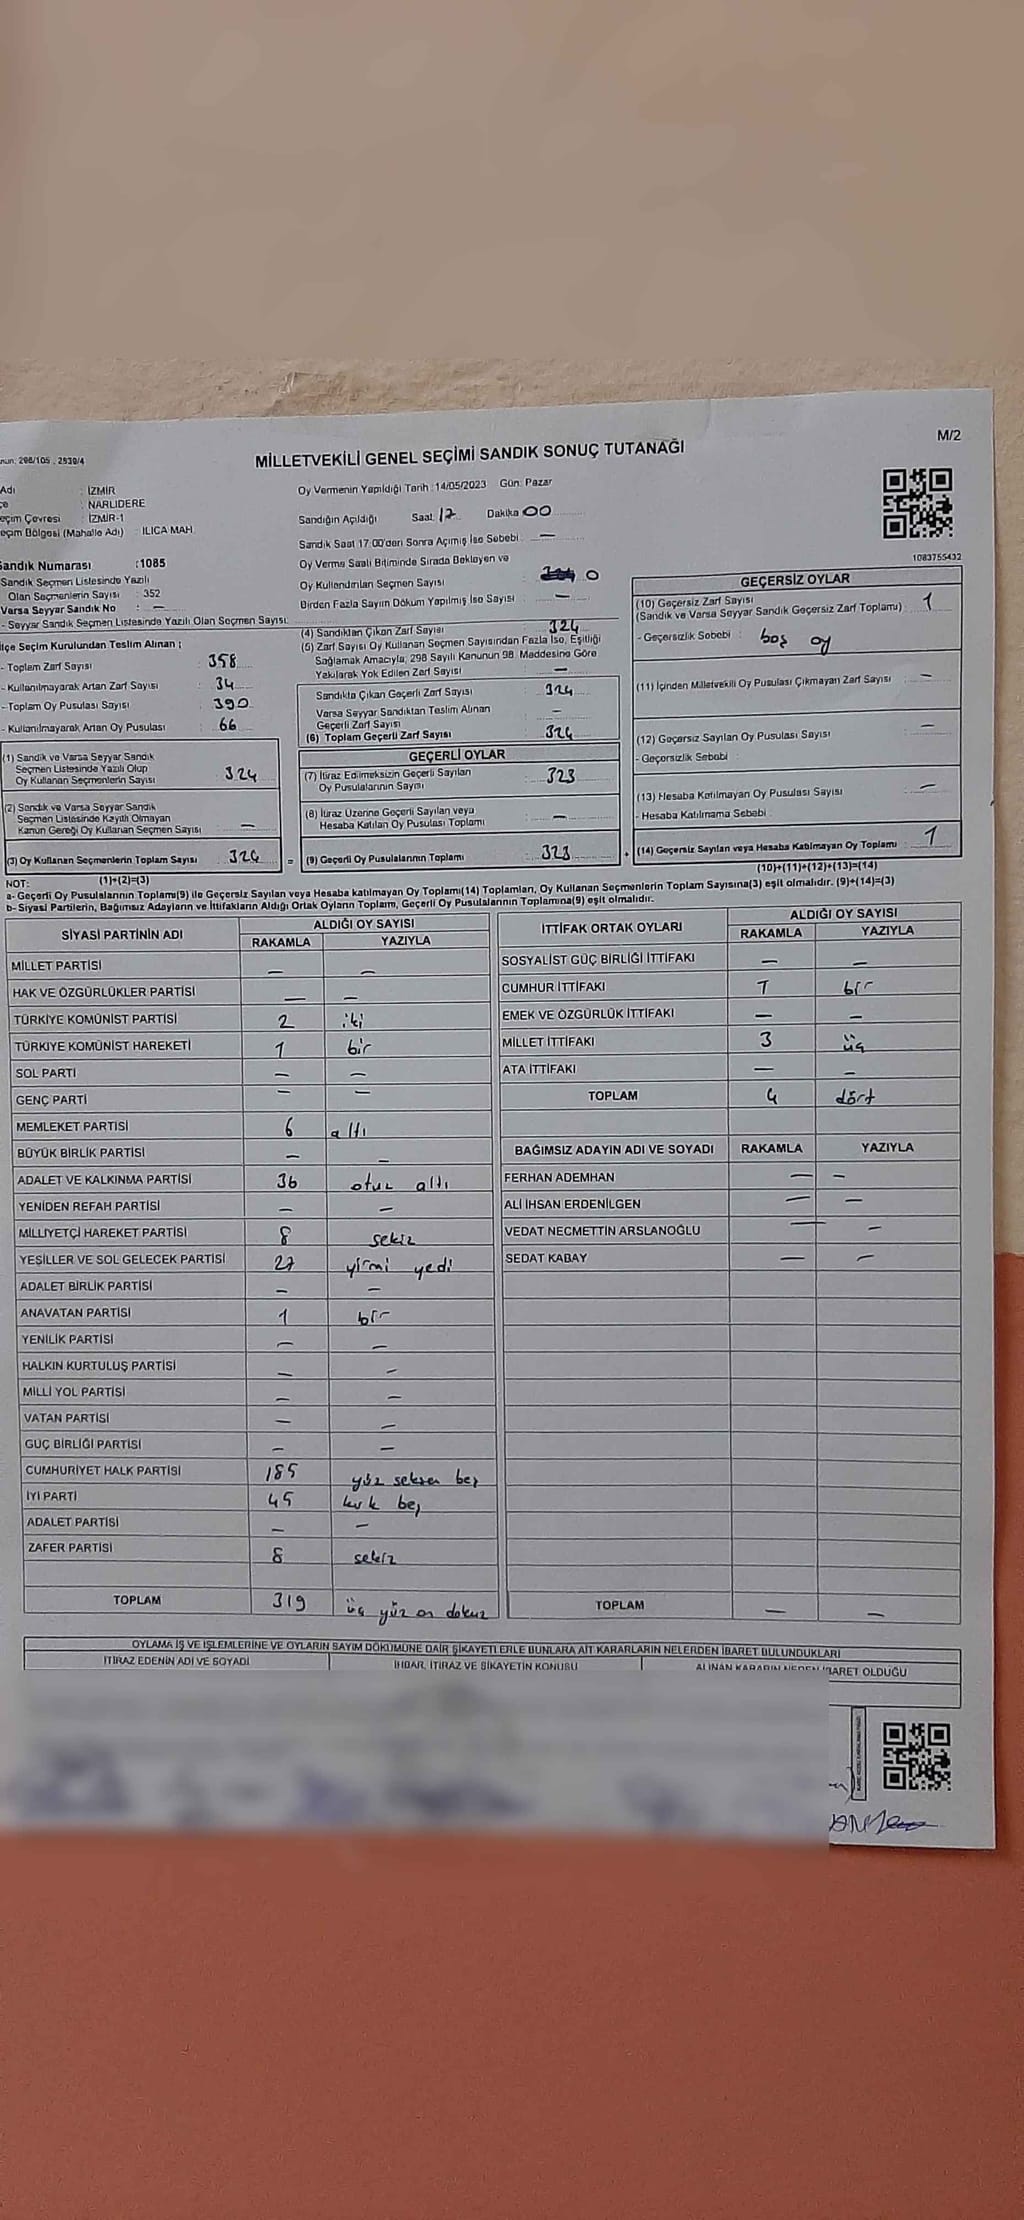 M/2
MİLLETVEKİLİ GENEL SEÇİMİ SANDIK SONUÇ TUTANAĞI
Adı : İZMİR
NARLIDERE
eçim Çevresi : İZMİR-1
eçim Bölgesi (Mahalle Adı) : ILICA MAH.
Oy Vermenin Yapıldığı Tarih :14/05/2023 Gün: Pazar
Sandığın Açıldığı Saat 17 Dakika 00
Sandık Saat 17.00'den Sonra Açımış İse Sebebi : —
Oy Verme Saati Bitiminde Sırada Bekleyen ve
Oy Kullandırılan Seçmen Sayısı : 0
Birden Fazla Sayım Döküm Yapılmış İse Sayısı : —
1083755432
Sandık Numarası :1085
Sandık Seçmen Listesinde Yazılı
Olan Seçmenlerin Sayısı : 352
Varsa Seyyar Sandık No : —
- Seyyar Sandık Seçmen Listesinde Yazılı Olan Seçmen Sayısı:
İlçe Seçim Kurulundan Teslim Alınan ;
- Toplam Zarf Sayısı : 358
- Kullanılmayarak Artan Zarf Sayısı : 34
- Toplam Oy Pusulası Sayısı : 390
- Kullanılmayarak Artan Oy Pusulası : 66
(1) Sandık ve Varsa Seyyar Sandık
Seçmen Listesinde Yazılı Olup
Oy Kullanan Seçmenlerin Sayısı : 324
(2) Sandık ve Varsa Seyyar Sandık
Seçmen Listesinde Kayıtlı Olmayan
Kanun Gereği Oy Kullanan Seçmen Sayısı : —
(3) Oy Kullanan Seçmenlerin Toplam Sayısı : 324
(1)+(2)=(3)
(4) Sandıktan Çıkan Zarf Sayısı : 324
(5) Zarf Sayısı Oy Kullanan Seçmen Sayısından Fazla İse, Eşitliği
Sağlamak Amacıyla, 298 Sayılı Kanunun 98. Maddesine Göre
Yakılarak Yok Edilen Zarf Sayısı : —
Sandıkta Çıkan Geçerli Zarf Sayısı : 324
Varsa Seyyar Sandıktan Teslim Alınan
Geçerli Zarf Sayısı : —
(6) Toplam Geçerli Zarf Sayısı : 324
GEÇERLİ OYLAR
(7) İtiraz Edilmeksizin Geçerli Sayılan
Oy Pusulalarının Sayısı : 323
(8) İtiraz Üzerine Geçerli Sayılan veya
Hesaba Katılan Oy Pusulası Toplamı : —
= (9) Geçerli Oy Pusulalarının Toplamı : 323
GEÇERSİZ OYLAR
(10) Geçersiz Zarf Sayısı
(Sandık ve Varsa Seyyar Sandık Geçersiz Zarf Toplamı) : 1
- Geçersizlik Sebebi : boş oy
(11) İçinden Milletvekili Oy Pusulası Çıkmayan Zarf Sayısı : —
(12) Geçersiz Sayılan Oy Pusulası Sayısı : —
- Geçersizlik Sebebi :
(13) Hesaba Katılmayan Oy Pusulası Sayısı : —
- Hesaba Katılmama Sebebi :
+ (14) Geçersiz Sayılan veya Hesaba Katılmayan Oy Toplamı : 1
(10)+(11)+(12)+(13)=(14)
NOT:
a- Geçerli Oy Pusulalarının Toplamı(9) ile Geçersiz Sayılan veya Hesaba katılmayan Oy Toplamı(14) Toplamları, Oy Kullanan Seçmenlerin Toplam Sayısına(3) eşit olmalıdır. (9)+(14)=(3)
b- Siyasi Partilerin, Bağımsız Adayların ve İttifakların Aldığı Ortak Oyların Toplamı, Geçerli Oy Pusulalarının Toplamına(9) eşit olmalıdır.
SİYASİ PARTİNİN ADI ALDIĞI OY SAYISI
RAKAMLA YAZIYLA
MİLLET PARTİSİ — —
HAK VE ÖZGÜRLÜKLER PARTİSİ — —
TÜRKİYE KOMÜNİST PARTİSİ 2 iki
TÜRKİYE KOMÜNİST HAREKETİ 1 bir
SOL PARTİ — —
GENÇ PARTİ — —
MEMLEKET PARTİSİ 6 altı
BÜYÜK BİRLİK PARTİSİ — —
ADALET VE KALKINMA PARTİSİ 36 otuz altı
YENİDEN REFAH PARTİSİ — —
MİLLİYETÇİ HAREKET PARTİSİ 8 sekiz
YEŞİLLER VE SOL GELECEK PARTİSİ 27 yirmi yedi
ADALET BİRLİK PARTİSİ — —
ANAVATAN PARTİSİ 1 bir
YENİLİK PARTİSİ — —
HALKIN KURTULUŞ PARTİSİ — —
MİLLİ YOL PARTİSİ — —
VATAN PARTİSİ — —
GÜÇ BİRLİĞİ PARTİSİ — —
CUMHURİYET HALK PARTİSİ 185 yüz seksen beş
İYİ PARTİ 45 kırk beş
ADALET PARTİSİ — —
ZAFER PARTİSİ 8 sekiz
TOPLAM 319 üç yüz on dokuz
İTTİFAK ORTAK OYLARI ALDIĞI OY SAYISI
RAKAMLA YAZIYLA
SOSYALİST GÜÇ BİRLİĞİ İTTİFAKI — —
CUMHUR İTTİFAKI 1 bir
EMEK VE ÖZGÜRLÜK İTTİFAKI — —
MİLLET İTTİFAKI 3 üç
ATA İTTİFAKI — —
TOPLAM 4 dört
BAĞIMSIZ ADAYIN ADI VE SOYADI RAKAMLA YAZIYLA
FERHAN ADEMHAN — —
ALİ İHSAN ERDENİLGEN — —
VEDAT NECMETTİN ARSLANOĞLU — —
SEDAT KABAY — —
TOPLAM — —
OYLAMA İŞ VE İŞLEMLERİNE VE OYLARIN SAYIM DÖKÜMÜNE DAİR ŞİKAYETLERLE BUNLARA AİT KARARLARIN NELERDEN İBARET BULUNDUKLARI
İTİRAZ EDENİN ADI VE SOYADI İHBAR, İTİRAZ VE ŞİKAYETİN KONUSU ALINAN KARARIN NEDEN İBARET OLDUĞU